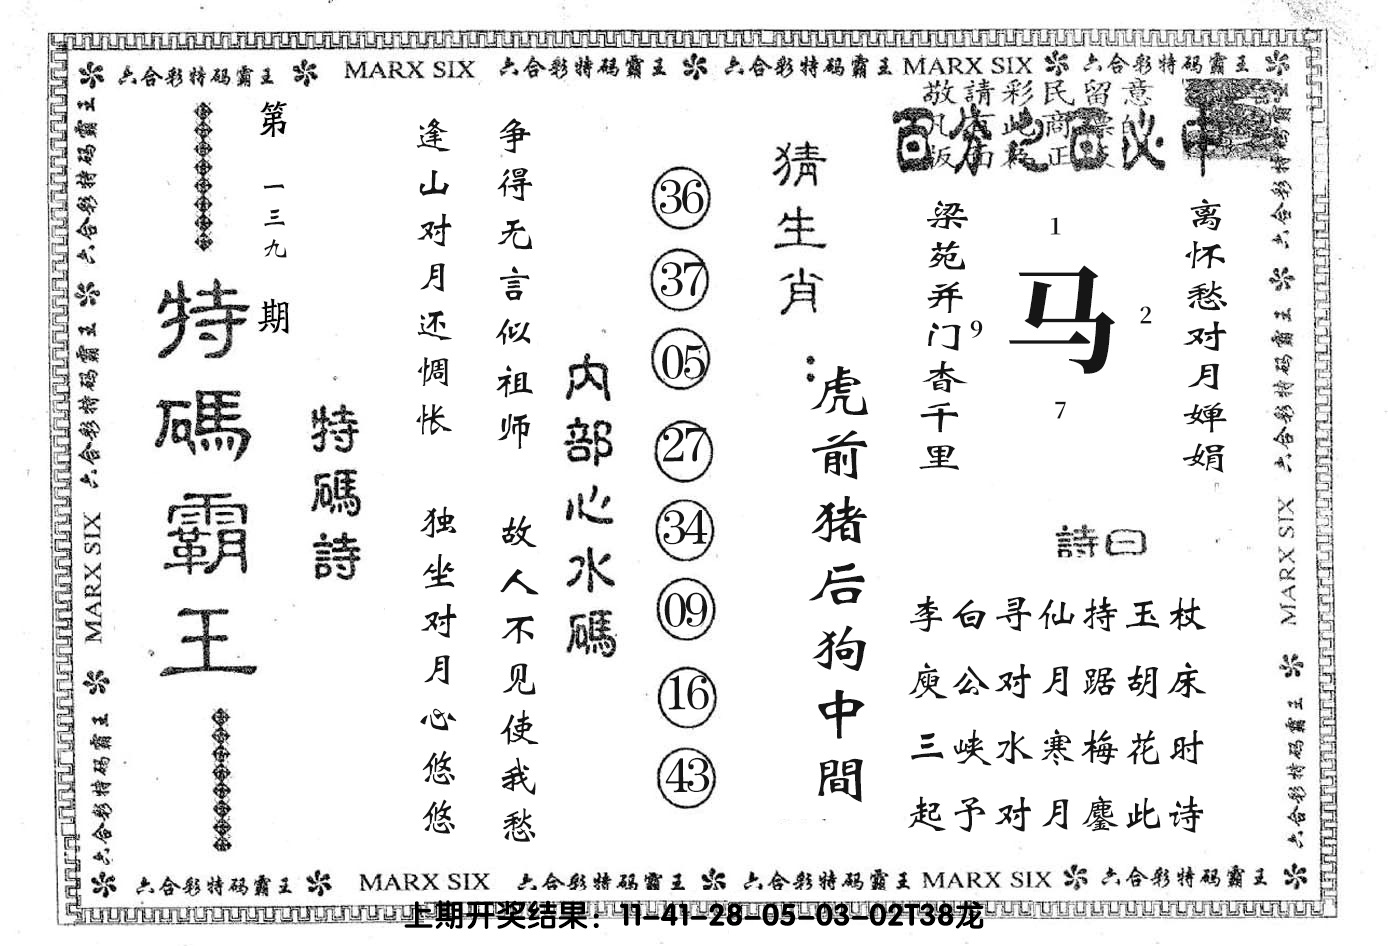 六合彩特码霸王 MARX SIX 六合彩特码霸王 六合彩特码霸王 MARX SIX 六合彩特码霸王
敬請彩民留意
百分之百必中
第一三九期
特碼霸王
特碼詩
逢山对月还惆怅 独坐对月心悠悠
争得无言似祖师 故人不见使我愁
内部心水碼
36
37
05
27
34
09
16
43
猜生肖：
虎前猪后狗中間
梁苑并门杳千里
1
9
马
2
7
离怀愁对月婵娟
詩曰
李白寻仙持玉杖
庾公对月踞胡床
三峡水寒梅花时
起予对月鏖此诗
六合彩特码霸王 六合彩特码霸王 六合彩特码霸王 MARX SIX 六合彩特码霸王
六合彩特码霸王 六合彩特码霸王 MARX SIX 六合彩特码霸王
六合彩特码霸王 MARX SIX 六合彩特码霸王 六合彩特码霸王 MARX SIX 六合彩特码霸王
上期开奖结果：11-41-28-05-03-02T38龙